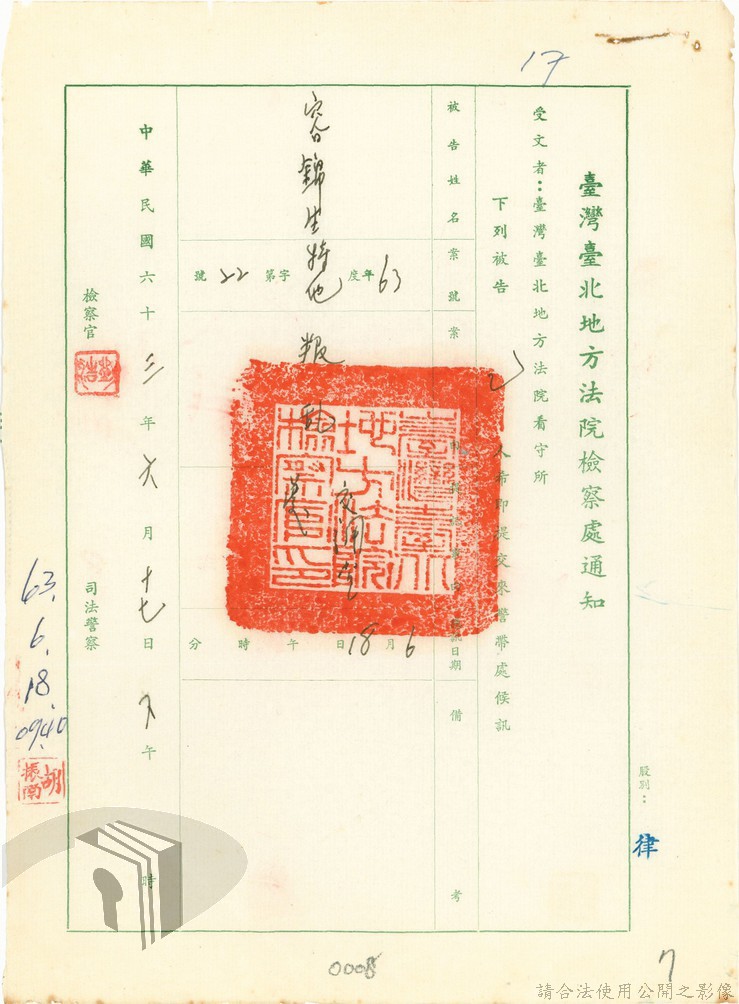 17
臺灣臺北地方法院檢察處通知
受文者：臺灣臺北地方法院看守所
下列被告
人希即提交來警帶處候訊
被告姓名
錦生
案號
63年度
字第22號
案
叛亂
訊日期
6月18日 午 時 分
備考
中華民國六十三年六月十七日下午 時
檢察官
司法警察
63.
6.
18.
0940
胡振南
股別：
律
0008
7
臺灣臺北地方法院檢察官印
請合法使用公開之影像